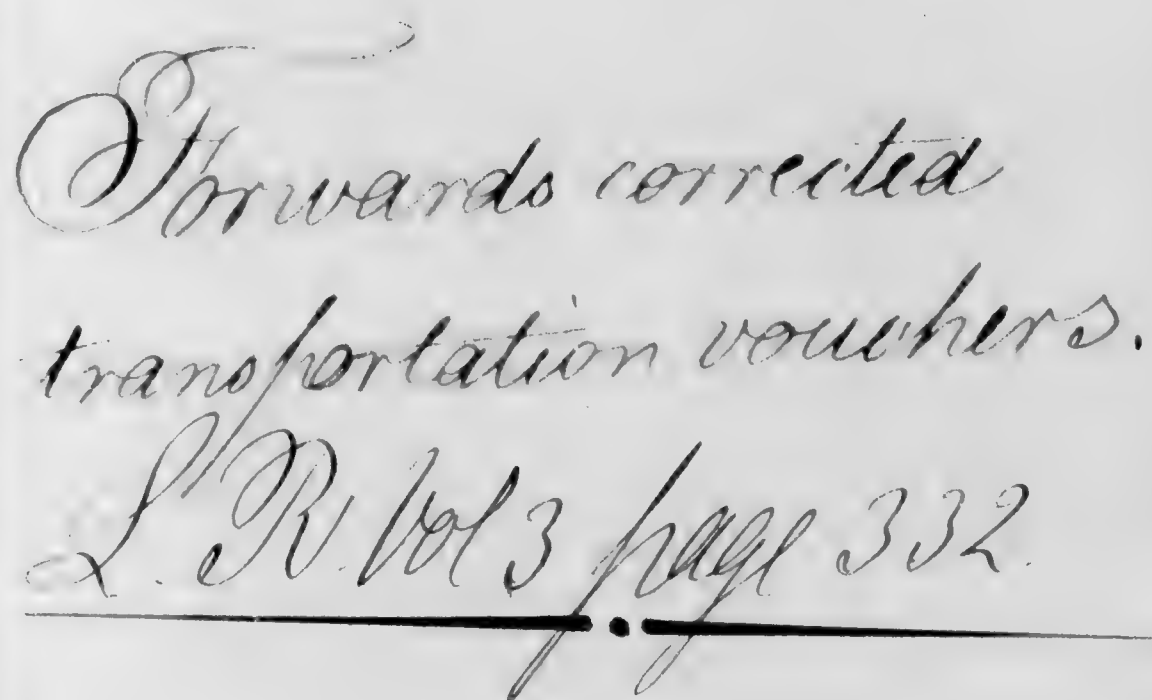 Forwards corrected
transportation vouchers.
L. R. Vol 3 page 332.